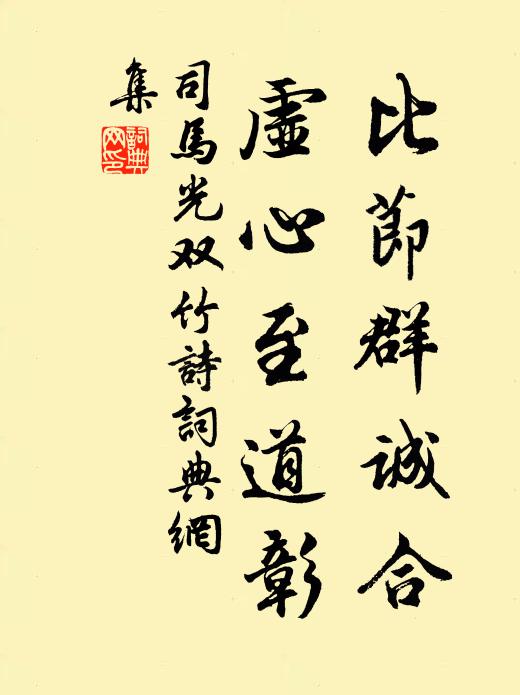 比節群誠合
虛心至道彰
司馬光双竹詩詞典網
集
詞典网印